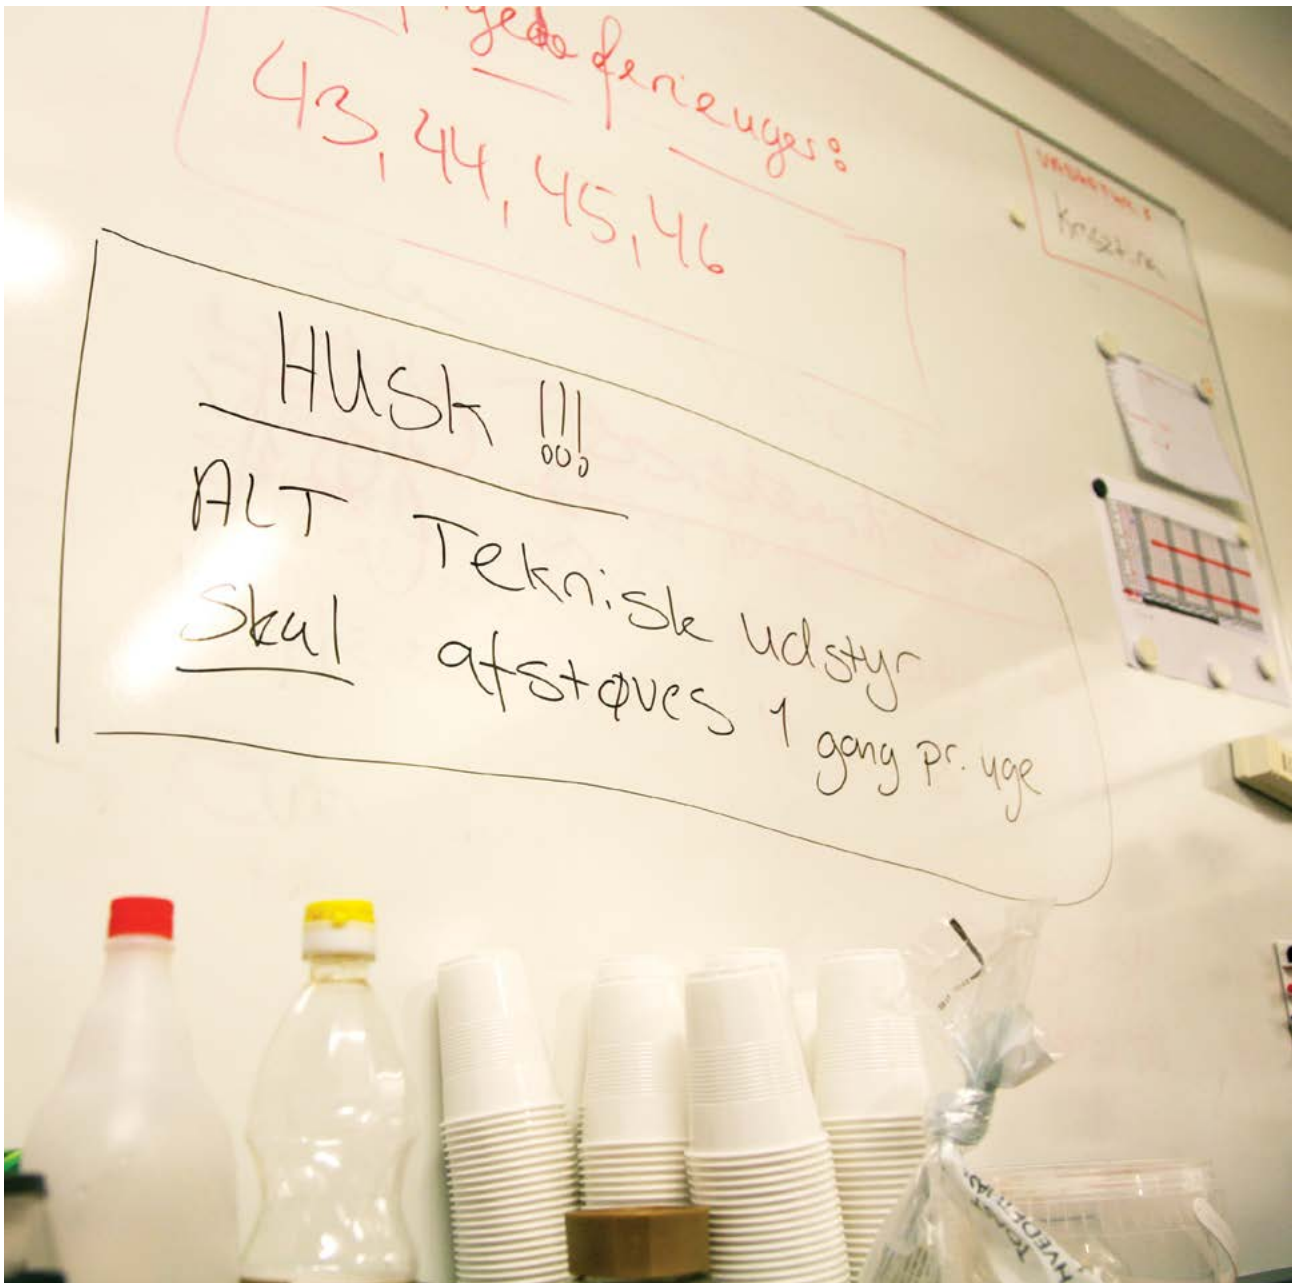 ferieuger:
43, 44, 45, 46
HUSK !!!
ALT Teknisk udstyr
Skal afstøves 1 gang pr. uge